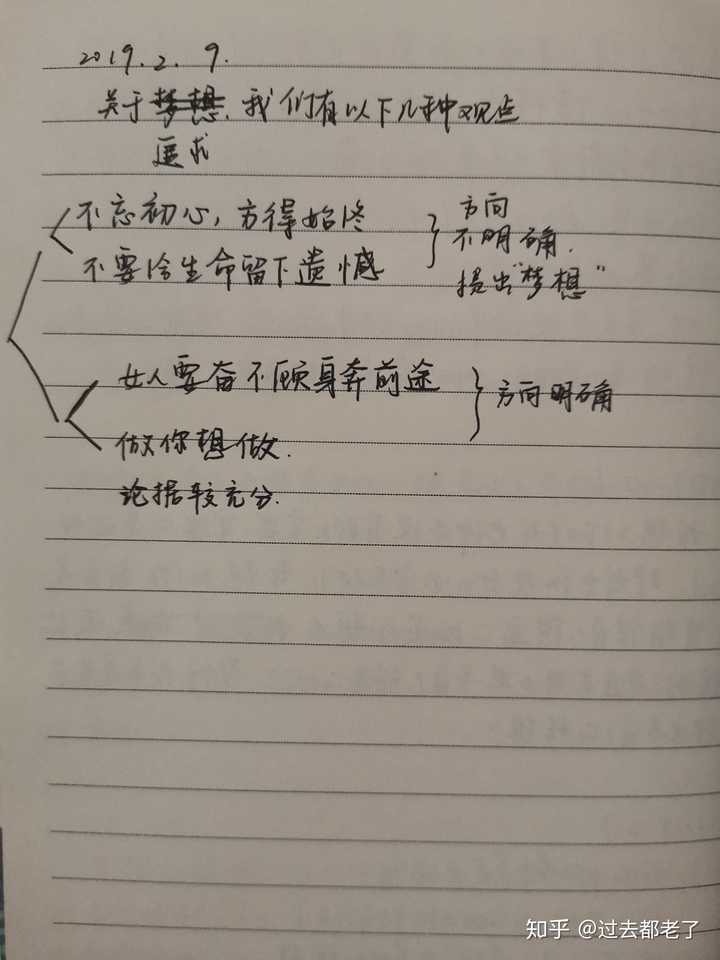 2019.2.9.
关于梦想,我们有以下几种观点
追求
不忘初心,方得始终
不要给生命留下遗憾
方向
不明确.
提出“梦想”
女人要奋不顾身奔前途
方向明确
做你想做.
论据较充分.
知乎 @过去都老了